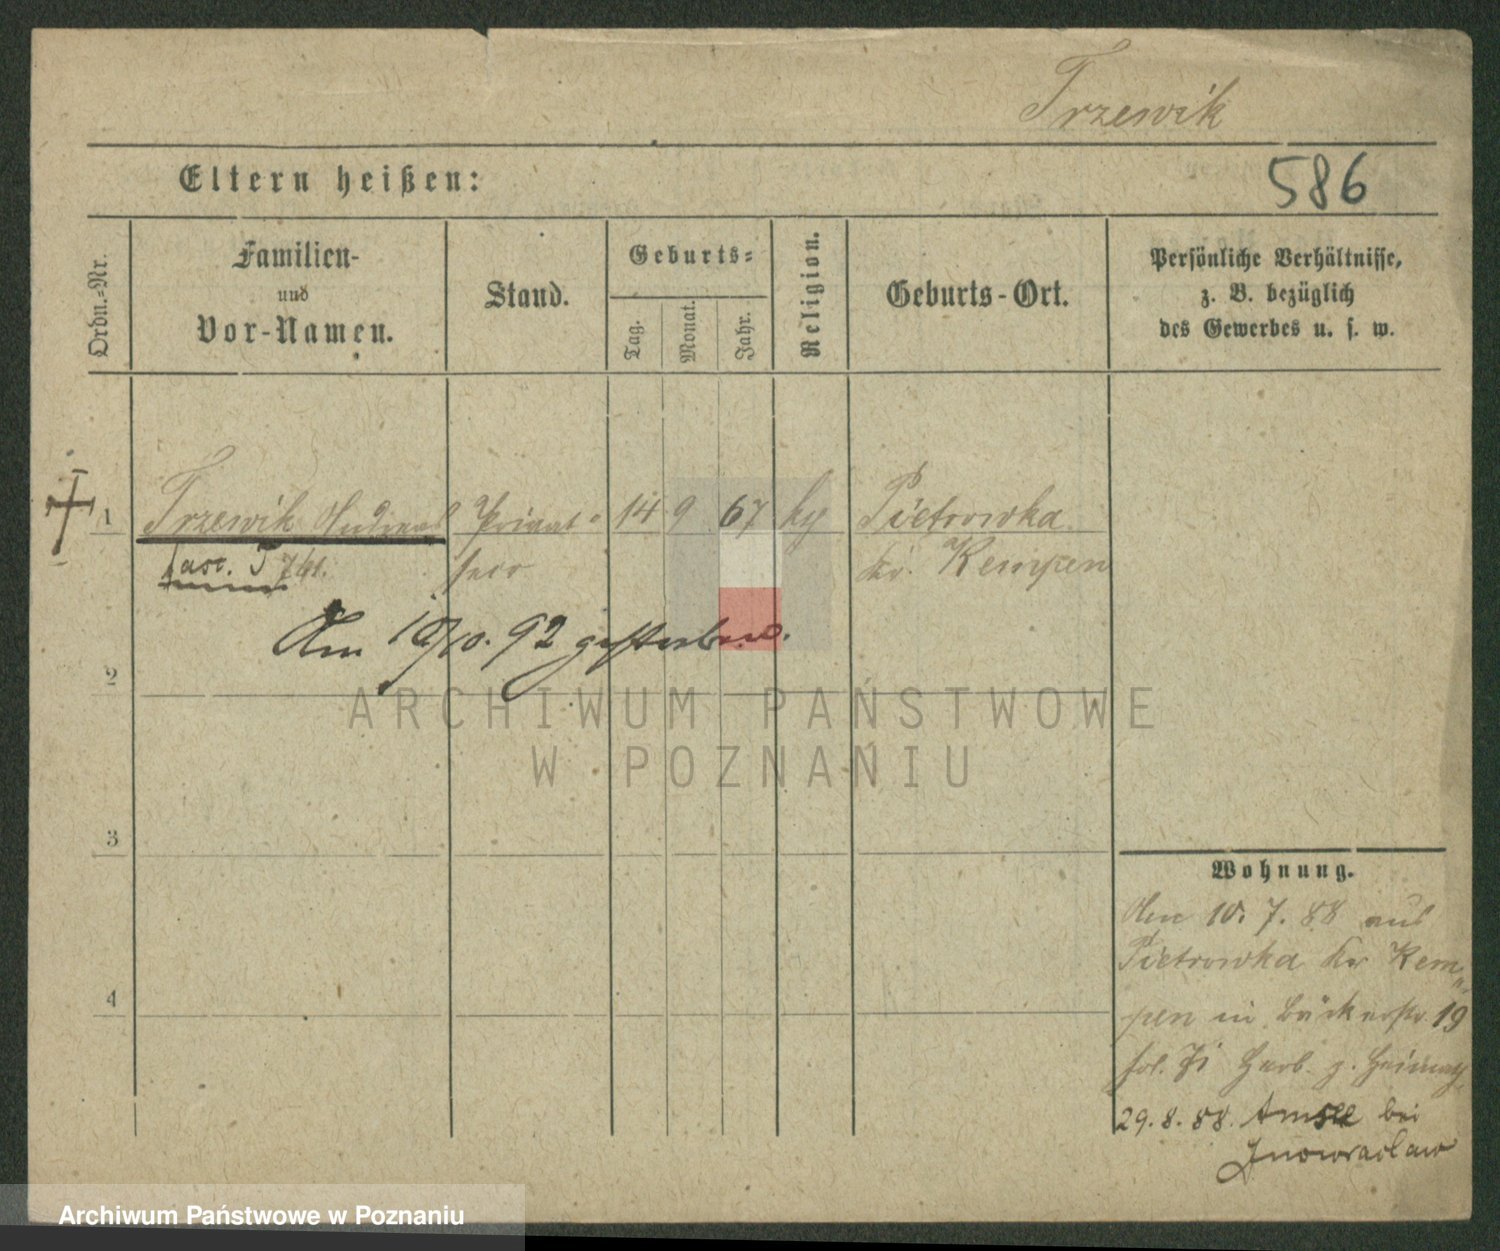 Trzewik
Eltern heißen:
586
Ordn.-Nr.
Familien-
und
Vor-Namen.
Stand.
Geburts-
Tag.
Monat.
Jahr.
Religion.
Geburts-Ort.
Persönliche Verhältnisse,
z. B. bezüglich
des Gewerbes u. s. w.
1 Trzewik Andreas Privat- 14 9 67 Pietrowka
kr. Kempen
Am 10/10. 92 gestorben.
2
ARCHIWUM PAŃSTWOWE
W POZNANIU
3
4
Wohnung.
Am 10. 7. 88 aus
Pietrowka kr Kem-
pen in Bäckerstr 19
Herb. z. Heimath
29. 8. 88. Amsee bei
Inowraclaw
Archiwum Państwowe w Poznaniu